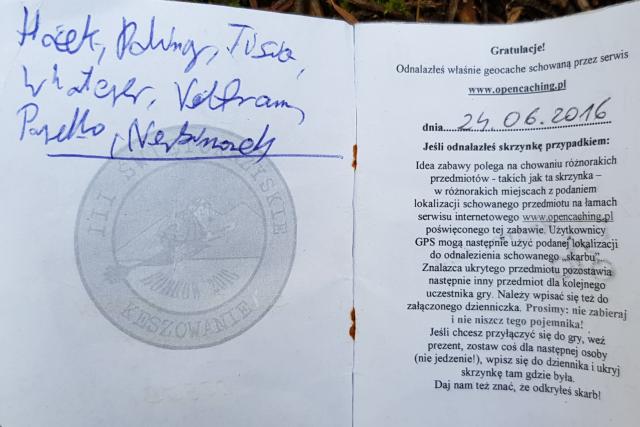 Hożek, Paling, Tusia,
Whatever, Voltram,
Pasełko, Nerbinoreh
III ŚWIĘTOKRZYSKIE
KESZOWANIE
2016
Gratulacje!
Odnalazłeś właśnie geocache schowaną przez serwis
www.opencaching.pl
dnia 24.06.2016
Jeśli odnalazłeś skrzynkę przypadkiem:
Idea zabawy polega na chowaniu różnorakich
przedmiotów - takich jak ta skrzynka –
w różnorakich miejscach z podaniem
lokalizacji schowanego przedmiotu na łamach
serwisu internetowego www.opencaching.pl
poświęconego tej zabawie. Użytkownicy
GPS mogą następnie użyć podanej lokalizacji
do odnalezienia schowanego „skarbu”.
Znalazca ukrytego przedmiotu pozostawia
następnie inny przedmiot dla kolejnego
uczestnika gry. Należy wpisać się też do
załączonego dzienniczka. Prosimy: nie zabieraj
i nie niszcz tego pojemnika!
Jeśli chcesz przyłączyć się do gry, weź
prezent, zostaw coś dla następnej osoby
(nie jedzenie!), wpisz się do dziennika i ukryj
skrzynkę tam gdzie była.
Daj nam też znać, że odkryłeś skarb!